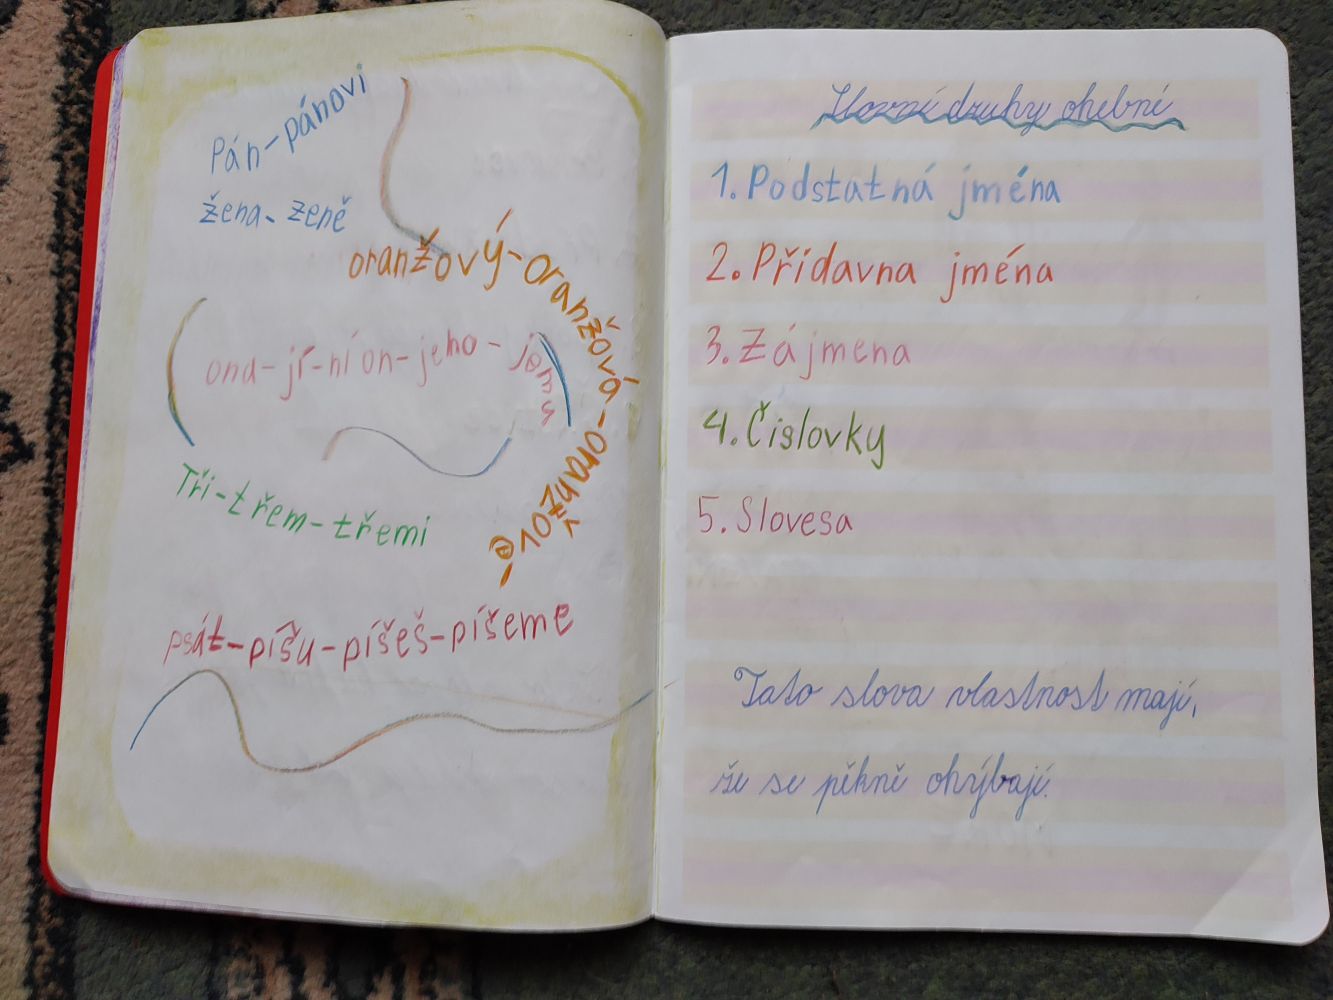 Pán-pánovi
žena-zeně
oranžový-oranžová-oranžové
ona-jí-ní on-jeho-jemu
Tři-třem-třemi
psát-píšu-píšeš-píšeme
Slovní druhy ohebné
1. Podstatná jména
2. Přídavna jména
3. Zájmena
4. Čislovky
5. Slovesa
Tato slova vlastnost mají,
že se pěkně ohýbají.